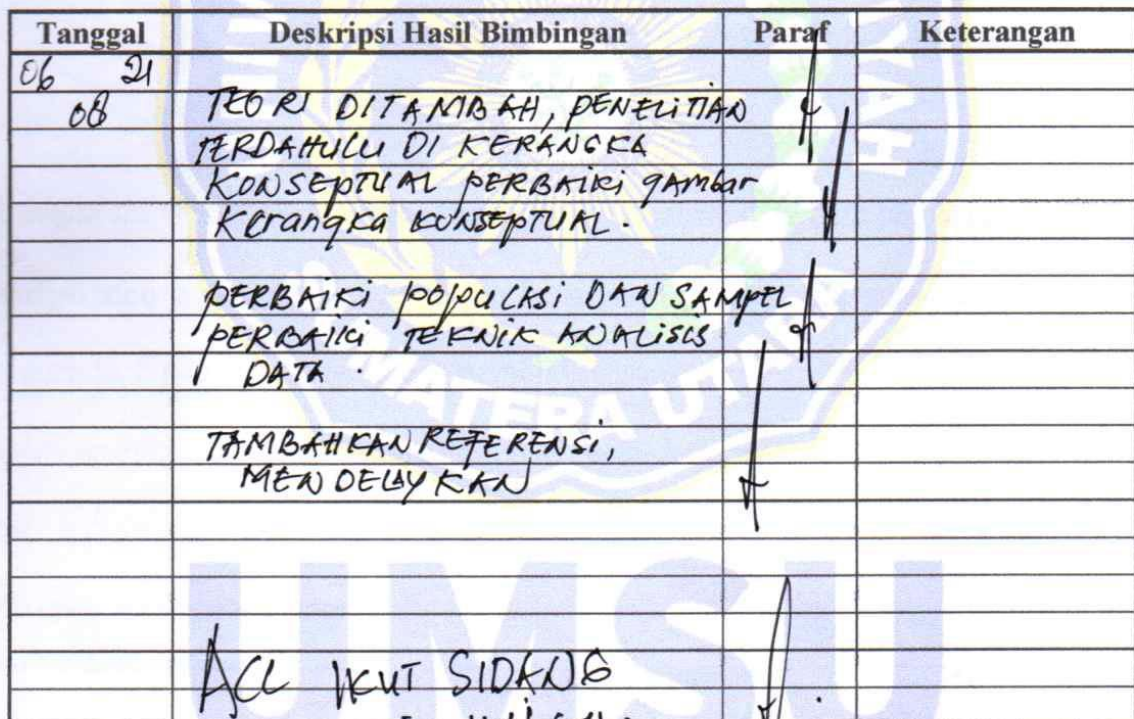 Tanggal Deskripsi Hasil Bimbingan Paraf Keterangan
06 21
08 TEORI DITAMBAH, PENELITIAN
TERDAHULU DI KERANGKA
KONSEPTUAL PERBAIKI gAMbar
Kerangka KONSEPTUAL.
PERBAIKI POPULASI DAN SAMPEL
PERBAIKI TEKNIK ANALISIS
DATA.
TAMBAHKAN REFERENSI,
MENDELAYKAN
ACC IKUT SIDANG
MATERA UTARA
UMSU